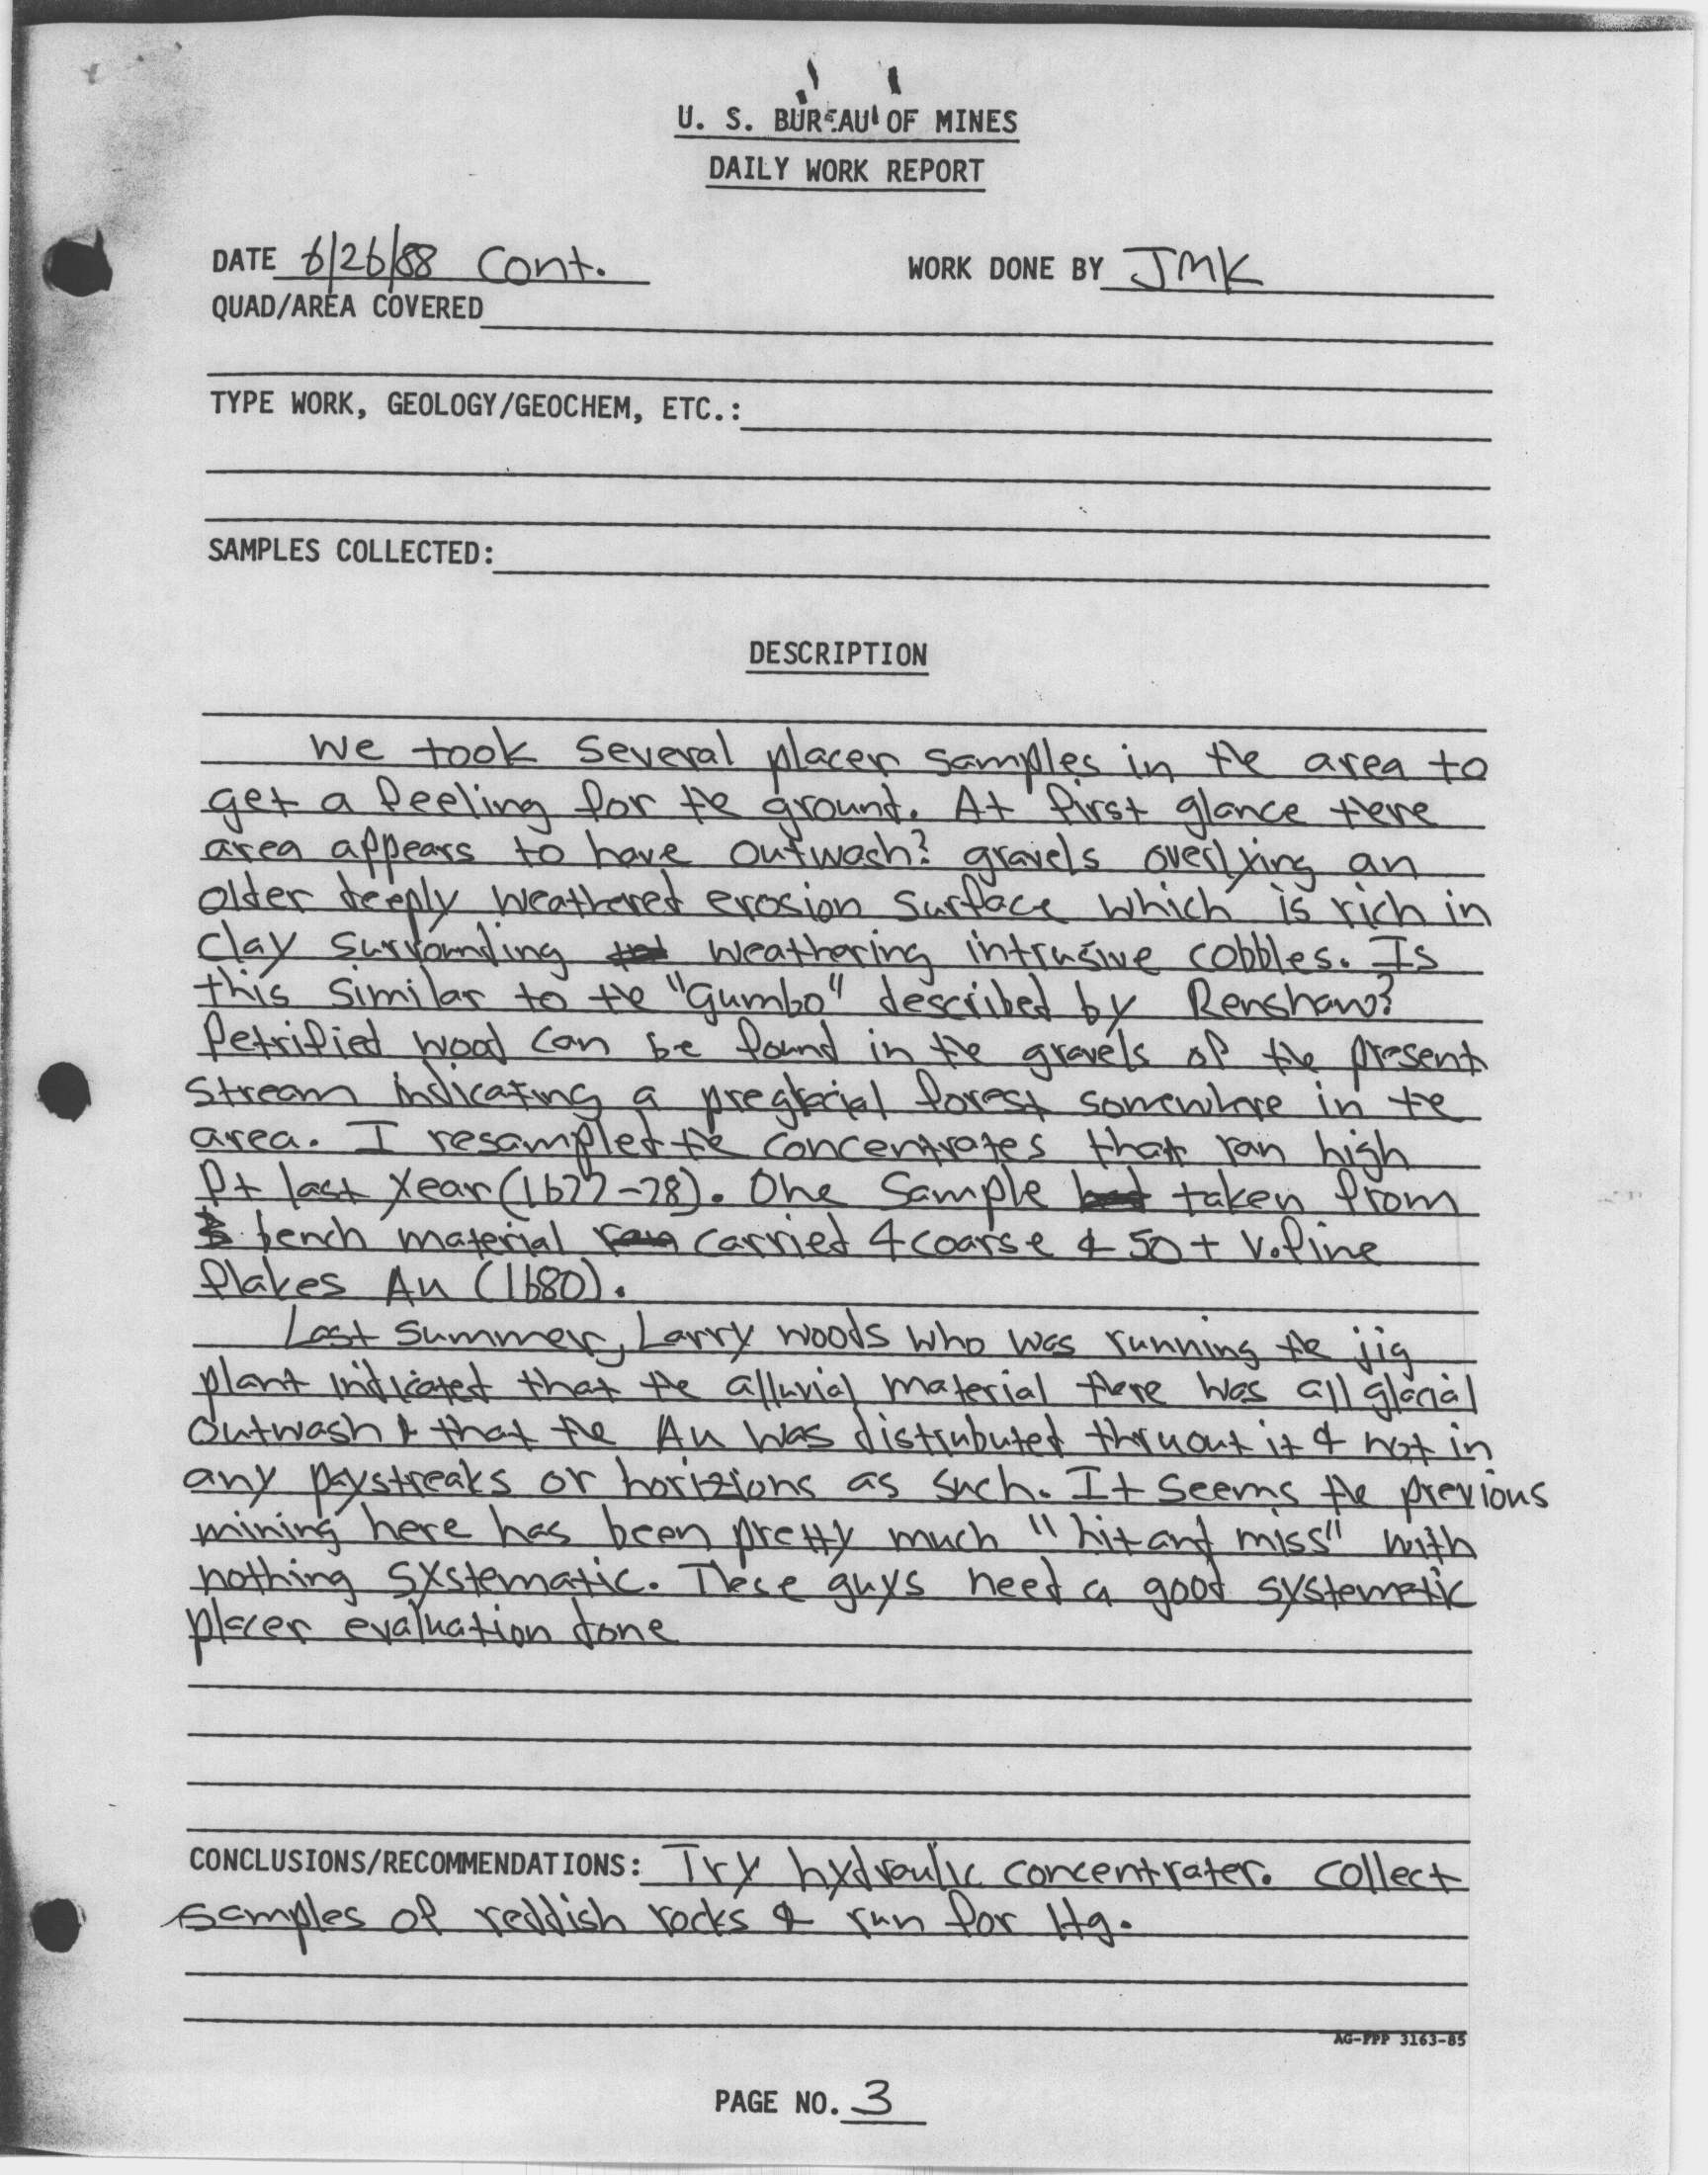 U. S. BUREAU OF MINES
DAILY WORK REPORT
DATE 6/26/88 cont. WORK DONE BY JMK
QUAD/AREA COVERED
TYPE WORK, GEOLOGY/GEOCHEM, ETC.:
SAMPLES COLLECTED:
DESCRIPTION
We took several placer samples in the area to
get a feeling for the ground. At first glance there
area appears to have outwash? gravels overlying an
older deeply weathered erosion surface which is rich in
clay surrounding weathering intrusive cobbles. Is
this similar to the "Gumbo" described by Renshaw?
Petrified wood can be found in the gravels of the present
stream indicating a preglacial forest somewhere in the
area. I resampled the concentrates that ran high
Pt last year (1677-78). One sample taken from
bench material carried 4 coarse & 50+ v. fine
flakes Au (1680).
Last summer, Larry Woods who was running the jig
plant indicated that the alluvial material there was all glacial
outwash & that the Au was distrubuted thruout it & not in
any paystreaks or horizions as such. It seems the previous
mining here has been pretty much "hit and miss" with
nothing systematic. These guys need a good systematic
placer evaluation done
CONCLUSIONS/RECOMMENDATIONS: Try hydraulic concentrater. Collect
samples of reddish rocks & run for Hg.
AG-FPP 3163-85
PAGE NO. 3